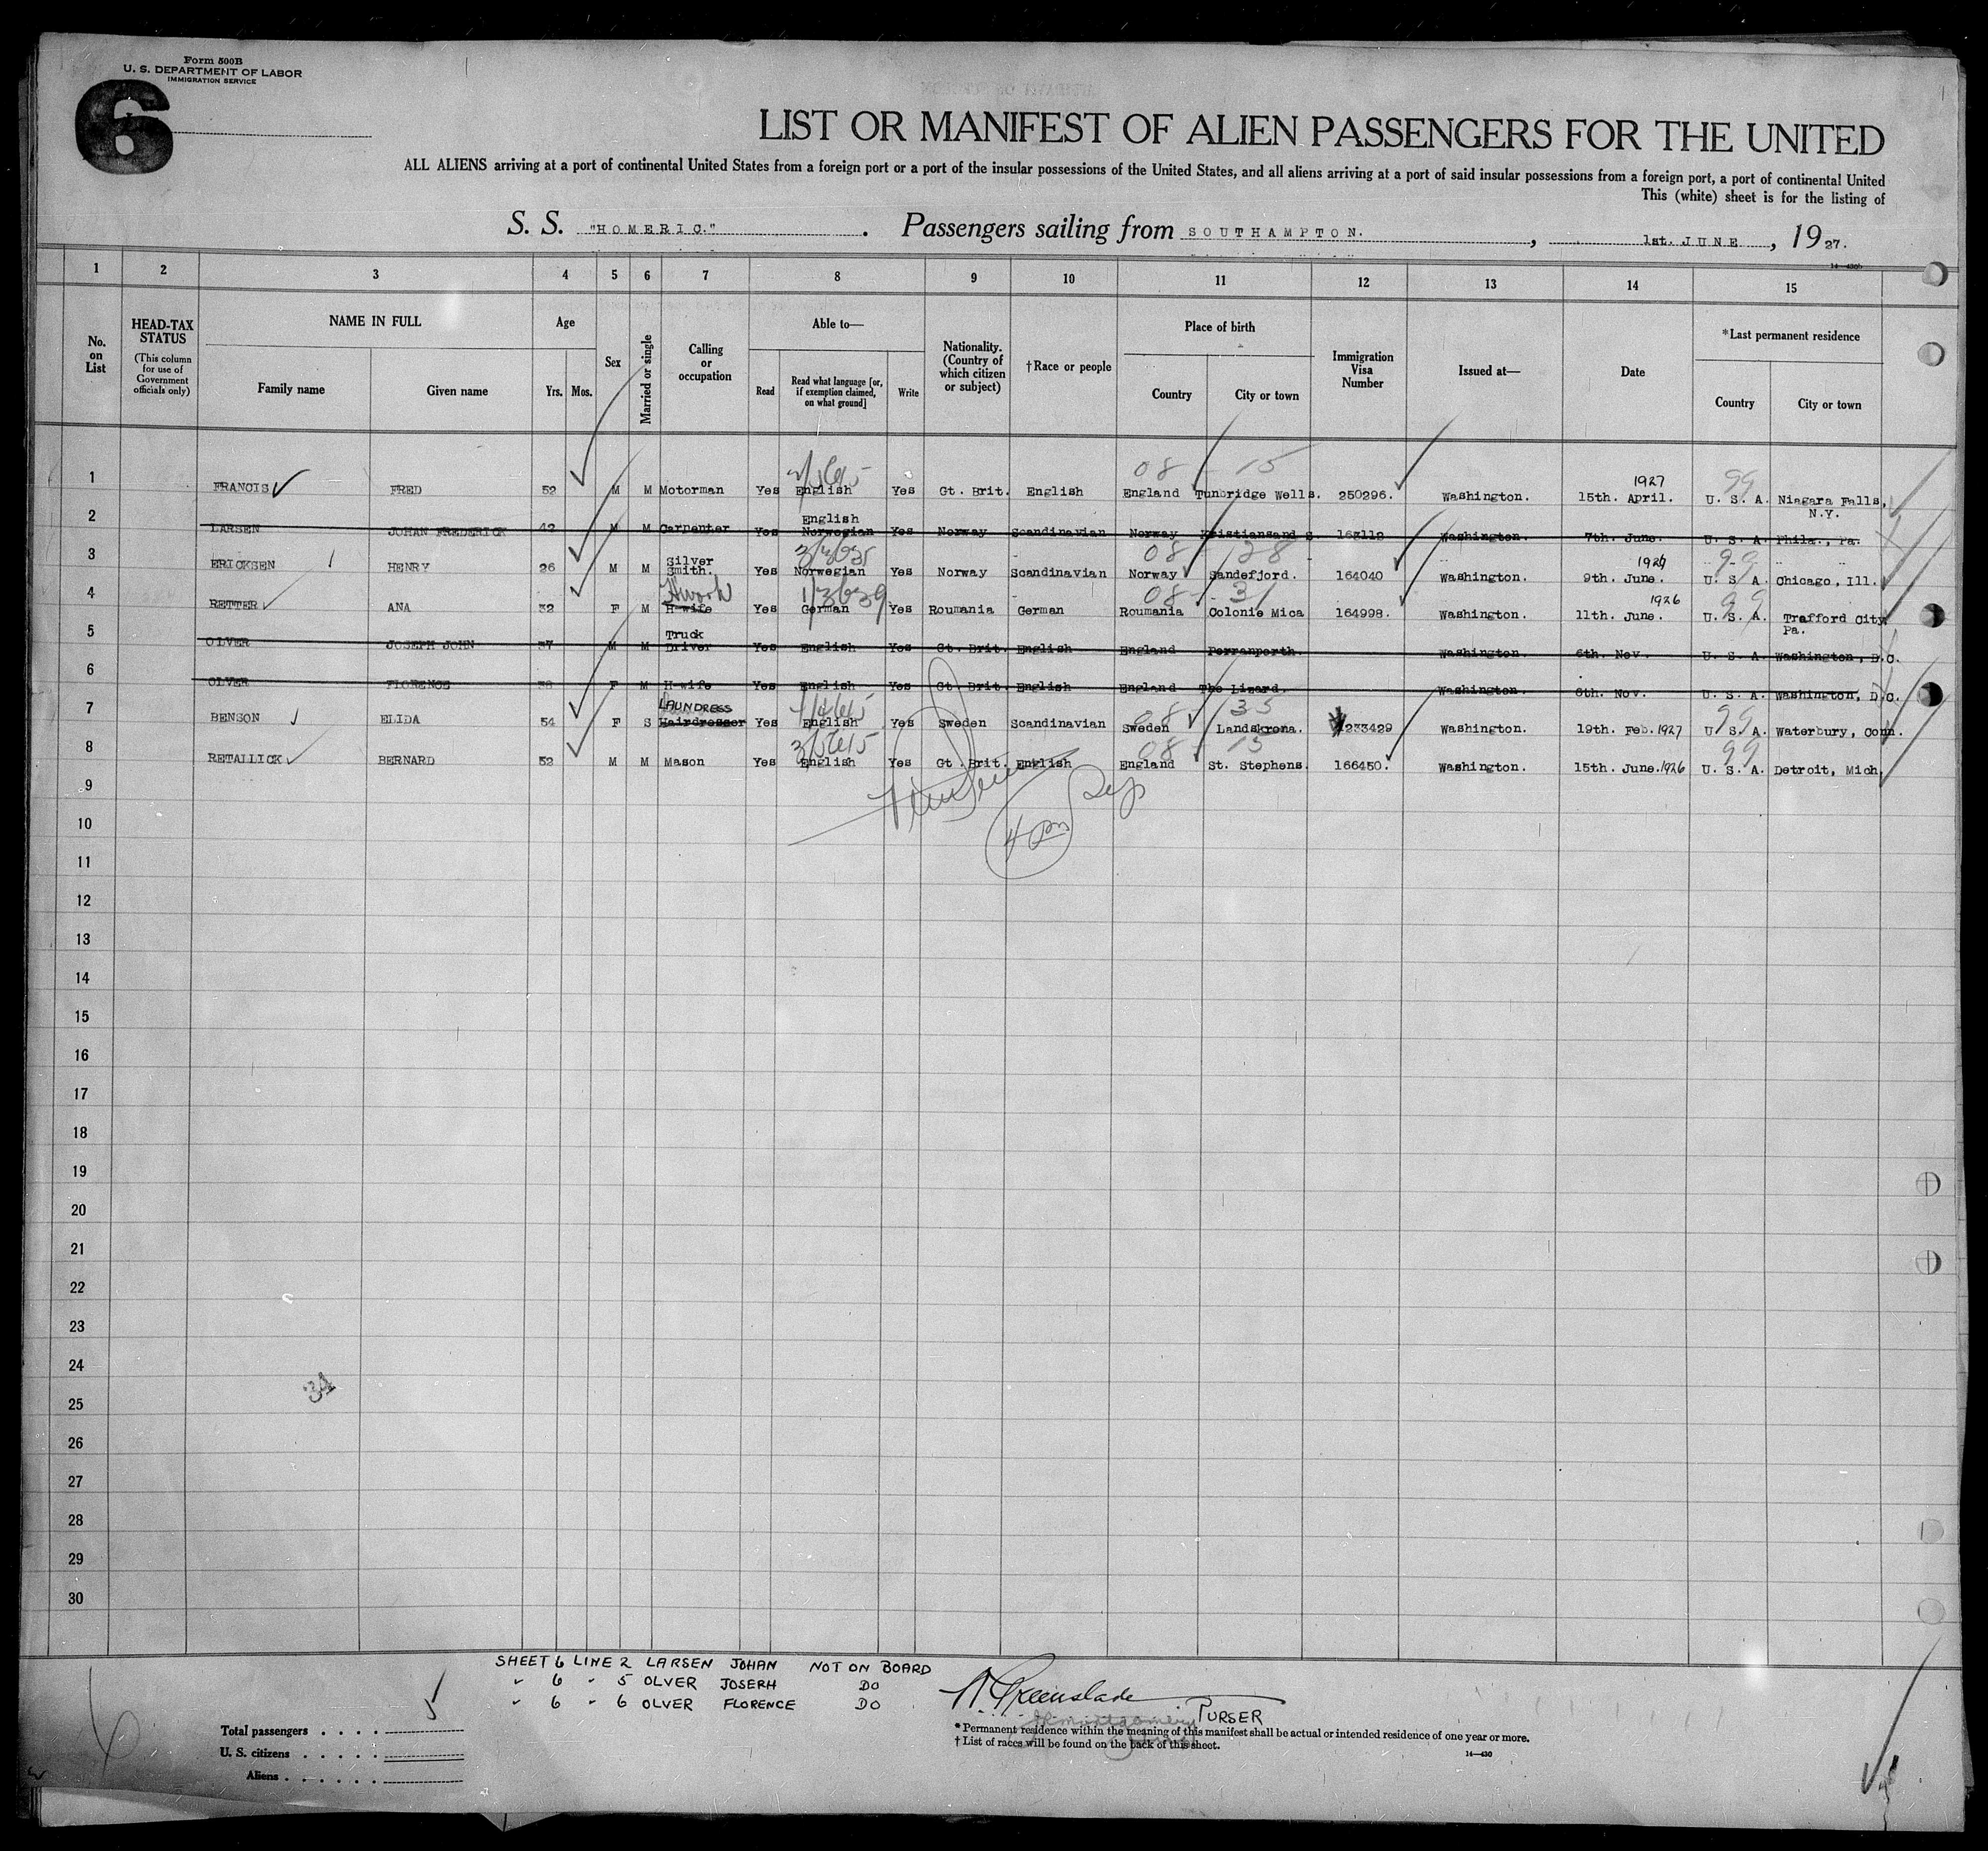 Form 500B
U. S. DEPARTMENT OF LABOR
IMMIGRATION SERVICE
6
LIST OR MANIFEST OF ALIEN PASSENGERS FOR THE UNITED
ALL ALIENS arriving at a port of continental United States from a foreign port or a port of the insular possessions of the United States, and all aliens arriving at a port of said insular possessions from a foreign port, a port of continental United
This (white) sheet is for the listing of
S. S. "HOMERIC." . Passengers sailing from SOUTHAMPTON. , 1st. JUNE , 1927.
14—430b
1 2 3 4 5 6 7 8 9 10 11 12 13 14 15
No. on List
HEAD-TAX STATUS
(This column for use of Government officials only)
NAME IN FULL
Family name Given name
Age
Yrs. Mos.
Sex
Married or single
Calling or occupation
Able to—
Read Read what language [or, if exemption claimed, on what ground] Write
Nationality. (Country of which citizen or subject)
†Race or people
Place of birth
Country City or town
Immigration Visa Number
Issued at—
Date
*Last permanent residence
Country City or town
08 15 1927 99
1 FRANCIS FRED 52 M M Motorman Yes English Yes Gt. Brit. English England Tunbridge Wells. 250296. Washington. 15th. April. U. S. A. Niagara Falls, N.Y.
2 LARSEN JOHAN FREDERICK 42 M M Carpenter Yes English Norwegian Yes Norway Scandinavian Norway Kristiansand S. Washington. 7th. June. U. S. A. Phila., Pa.
08 28 99
3 ERICKSEN HENRY 26 M M Silver Smith. Yes Norwegian Yes Norway Scandinavian Norway Sandefjord. 164040 Washington. 9th. June. U. S. A. Chicago, Ill.
H'work 08 31 1926 99
4 RETTER ANA 32 F M H-wife Yes German Yes Roumania German Roumania Colonie Mica 164998. Washington. 11th. June. U. S. A. Trafford City, Pa.
5 OLVER JOSEPH JOHN 37 M M Truck Driver Yes English Yes Gt. Brit. English England Perranporth. Washington. 6th. Nov. U. S. A. Washington, D.C.
6 OLVER FLORENCE 38 F M H-wife Yes English Yes Gt. Brit. English England The Lizard. Washington. 6th. Nov. U. S. A. Washington, D.C.
LAUNDRESS 08 35 99
7 BENSON ELIDA 54 F S Hairdresser Yes English Yes Sweden Scandinavian Sweden Landskrona. 233429 Washington. 19th. Feb. 1927 U. S. A. Waterbury, Conn.
08 15 99
8 RETALLICK BERNARD 52 M M Mason Yes English Yes Gt. Brit. English England St. Stephens. 166450. Washington. 15th. June. 1926 U. S. A. Detroit, Mich.
9
10
11
12
13
14
15
16
17
18
19
20
21
22
23
24
34
25
26
27
28
29
30
SHEET 6 LINE 2 LARSEN JOHAN NOT ON BOARD
" 6 " 5 OLVER JOSEPH DO
" 6 " 6 OLVER FLORENCE DO
Greenslade
PURSER
5
Total passengers . . . .
U. S. citizens . . . . .
Aliens . . . . . .
* Permanent residence within the meaning of this manifest shall be actual or intended residence of one year or more.
† List of races will be found on the back of this sheet.
14—430